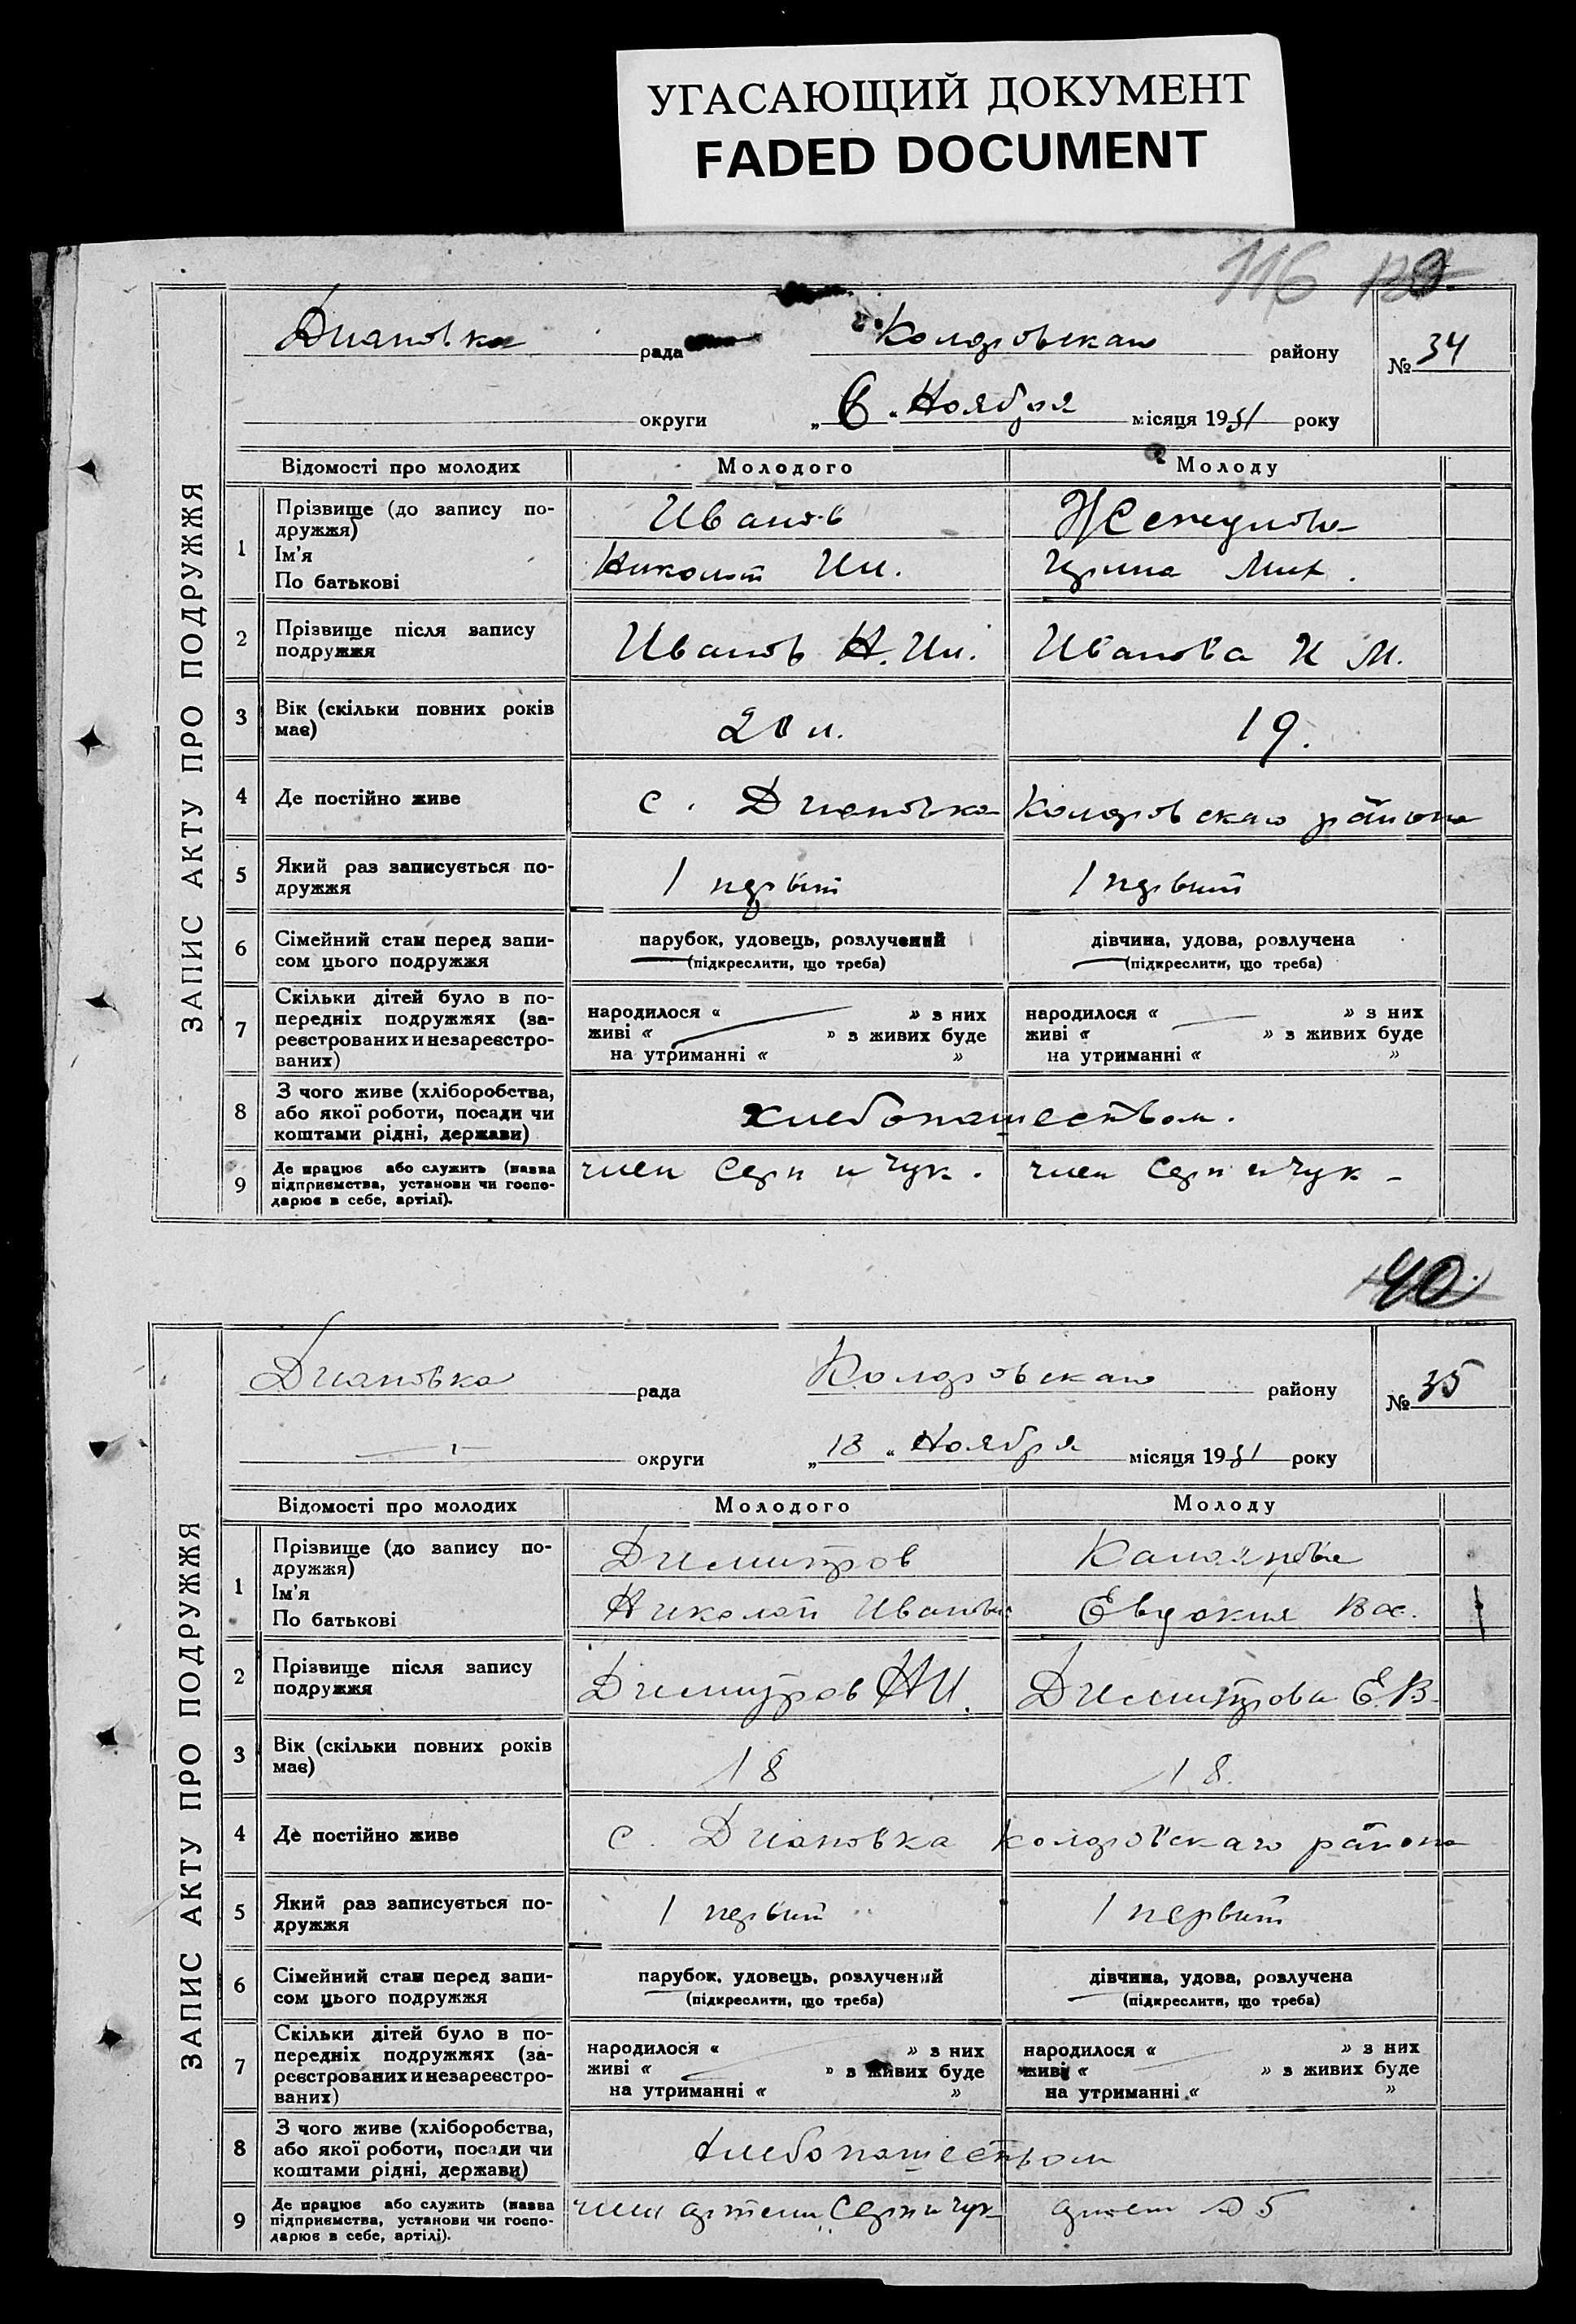 УГАСАЮЩИЙ ДОКУМЕНТ
FADED DOCUMENT
116
ЗАПИС АКТУ ПРО ПОДРУЖЖЯ
Диановка рада Коларовскаго району № 34
округи „6“ Ноября місяця 1931 року
Відомості про молодих Молодого Молоду
1 Прізвище (до запису по-
дружжя)
Ім'я
По батькові
Иванов
Николай Ил. Ирина Мих.
2 Прізвище після запису
подружжя
Иванов Н. Ил. Иванова И М.
3 Вік (скільки повних років
має)
20 л. 19.
4 Де постійно живе
с. Диановка Коларовскаго района
5 Який раз записується по-
дружжя
1 первый 1 первый
6 Сімейний стан перед запи-
сом цього подружжя
парубок, удовець, розлучений
(підкреслити, що треба)
дівчина, удова, розлучена
(підкреслити, що треба)
7 Скільки дітей було в по-
передніх подружжях (за-
реєстрованих и незареєстро-
ваних)
народилося « » з них
живі « » з живих буде
на утриманні « »
народилося « » з них
живі « » з живих буде
на утриманні « »
8 З чого живе (хліборобства,
або якої роботи, посади чи
коштами рідні, держави)
хлебопашеством.
9 Де працює або служить (назва
підприємства, установи чи госпо-
дарює в себе, артілі).
член Серп и Чук. член Серп и Чук -
40
ЗАПИС АКТУ ПРО ПОДРУЖЖЯ
Диановка рада Коларовскаго району № 35
округи „13“ Ноября місяця 1931 року
Відомості про молодих Молодого Молоду
1 Прізвище (до запису по-
дружжя)
Ім'я
По батькові
Димитров
Николай Иванов Евдокия Вас.
2 Прізвище після запису
подружжя
Димитров Н И. Димитрова Е. В.
3 Вік (скільки повних років
має)
18 18.
4 Де постійно живе
с. Диановка Коларовскаго района
5 Який раз записується по-
дружжя
1 первый 1 первый
6 Сімейний стан перед запи-
сом цього подружжя
парубок, удовець, розлучений
(підкреслити, що треба)
дівчина, удова, розлучена
(підкреслити, що треба)
7 Скільки дітей було в по-
передніх подружжях (за-
реєстрованих и незареєстро-
ваних)
народилося « » з них
живі « » з живих буде
на утриманні « »
народилося « » з них
живі « » з живих буде
на утриманні « »
8 З чого живе (хліборобства,
або якої роботи, посади чи
коштами рідні, держави)
хлебопашеством
9 Де працює або служить (назва
підприємства, установи чи госпо-
дарює в себе, артілі).
член артели „Серп и Чук 5